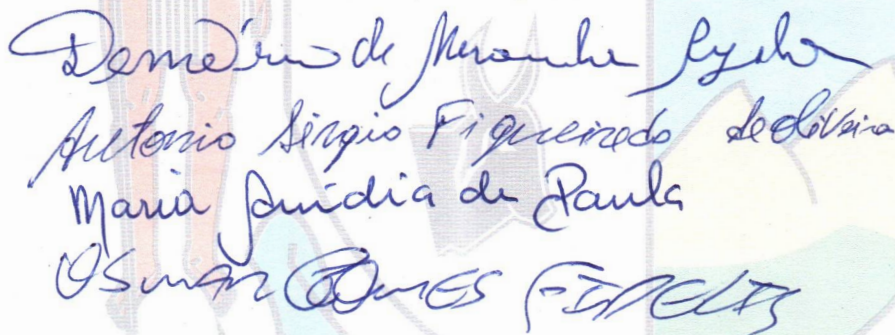 Demétrio de Miranda
Antonio Sérgio Figueiredo de Oliveira
Maria de Paula
OSMAR GOMES FIDELIS